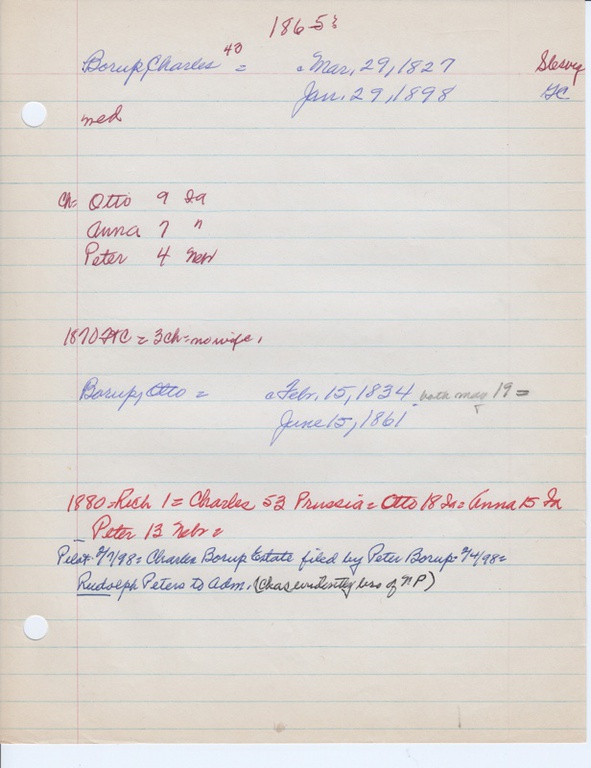 1865?
Borup, Charles 43 = Mar. 29, 1827 Slesvig
Jan. 29, 1898 GC
med
Ch= Otto 9 Ia
Anna 7 "
Peter 4 Nebr
1870 = 3 ch = no wife.
Borup, Otto = Febr. 15, 1834 both may 19 =
June 15, 1861
1880 = Rich 1 = Charles 53 Prussia = Otto 18 Ia = Anna 15 Ia
Peter 13 Nebr =
Pilot 2/7/98 = Charles Borup Estate filed by Peter Borup = 2/4/98 =
Rudolph Peters to Adm. (Chas evidently bro of NP)